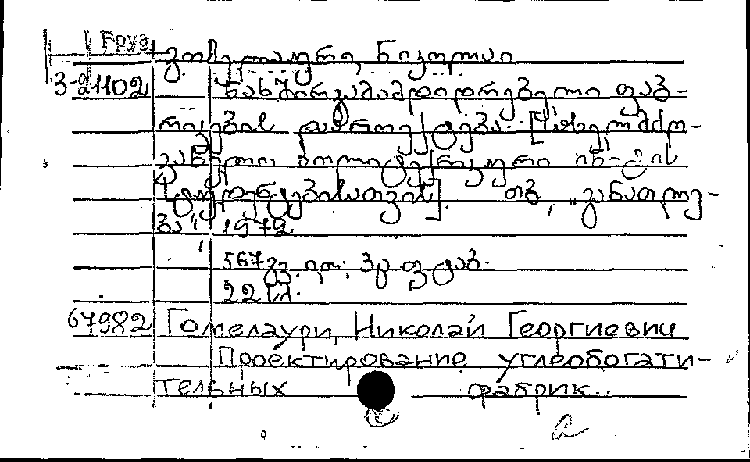 Груз
გომელაური, ნიკოლაი
3-21102 ნახშირგამამდიდრებელი ფაბ-
რიკების დაპროექტება. [სახელმძღ-
ვანელო პოლიტექნიკური ინ-ტის
სტუდენტებისათვის]. თბ., „განათლე-
ბა“, 1972
567 გვ. ილ; 3 ც. ფ. ტაბ.
22 სმ.
67982 Гомелаури, Николай Георгиевич
Проектирование углеобогати-
тельных фабрик..